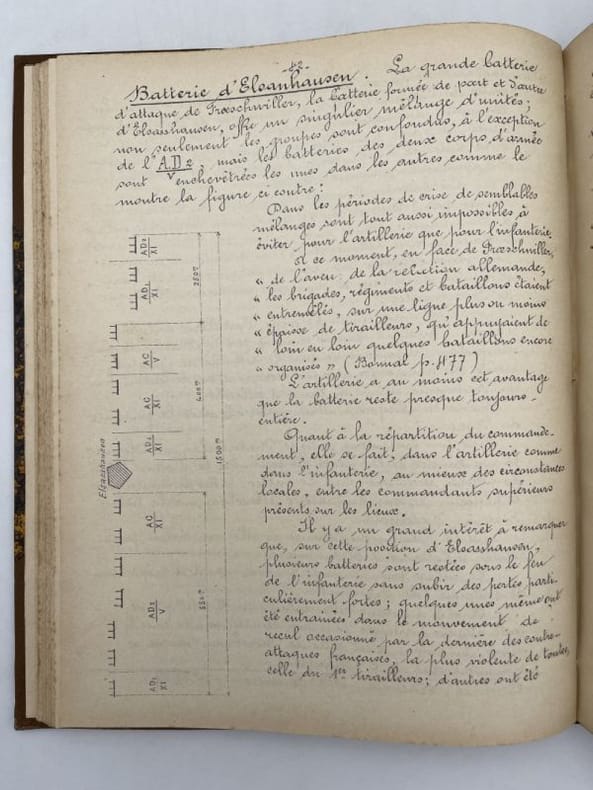 -42-
Batterie d'Elsashausen. La grande batterie
d'attaque de Froeschwiller, la batterie formée de part et d'autre
d'Elsasshausen, offre un singulier mélange d'unités;
non seulement les groupes sont confondus, à l'exception
de l'A.D2, mais les batteries des deux corps d'armée
sont enchevêtrées les unes dans les autres comme le
montre la figure ci contre:
Dans les périodes de crise de semblables
mélanges sont tout aussi impossibles à
éviter pour l'artillerie que pour l'infanterie.
A ce moment, en face de Froeschwiller,
" de l'aveu de la relation allemande,
" les brigades, régiments et bataillons étaient
" entremêlés, sur une ligne plus ou moins
" épaisse de tirailleurs, qu'appuyaient de
" loin en loin quelques bataillons encore
" organisés » (Bonnal p. 477)
L'artillerie a au moins cet avantage
que la batterie reste presque toujours
entière.
Quant à la répartition du commande-
ment, elle se fait, dans l'artillerie comme
dans l'infanterie, au mieux des circonstances
locales, entre les commandants supérieurs
présents sur les lieux.
Il y a un grand intérêt à remarquer
que, sur cette position d'Elsasshausen,
plusieurs batteries sont restées sous le feu
de l'infanterie sans subir des pertes parti-
culièrement fortes; quelques unes même ont
été entrainées dans le mouvement de
recul occasionné par la dernière des contre-
attaques françaises, la plus violente de toutes,
celle du 1er tirailleurs; d'autres ont été
AD2
XI
AD1
XI
250m
AC
V
AC
XI
AD1
XI
400m
1500m
Elsasshausen
AC
XI
AD2
V
AD1
XI
550m